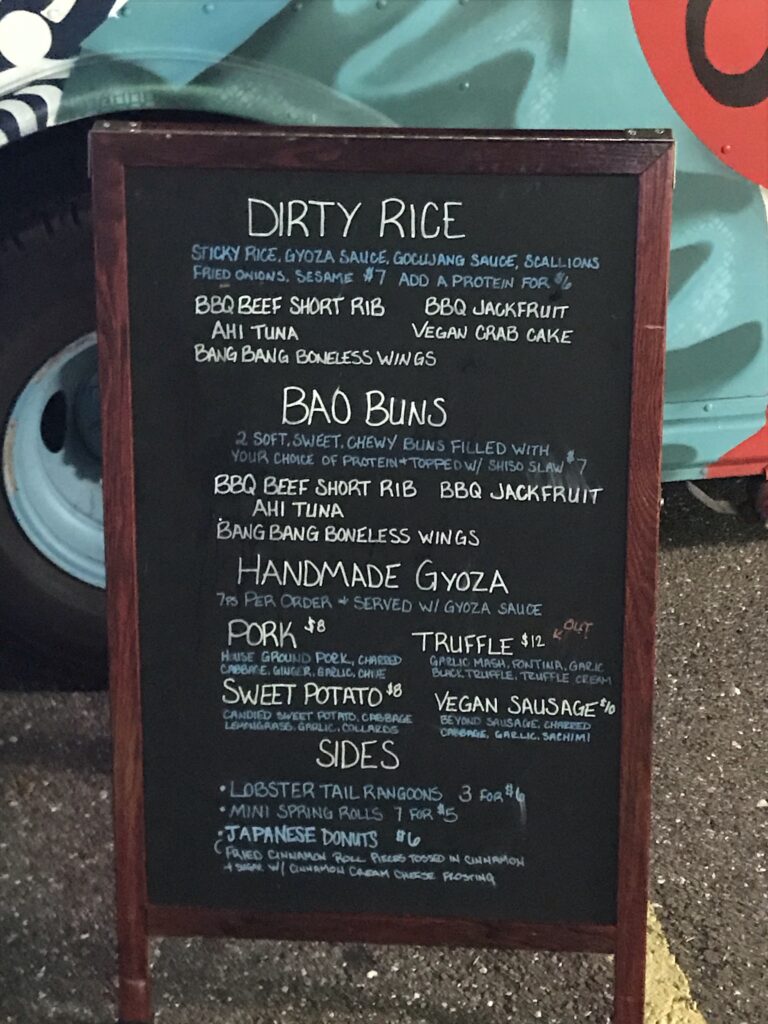 DIRTY RICE
STICKY RICE, GYOZA SAUCE, GOCUJANG SAUCE, SCALLIONS
FRIED ONIONS, SESAME $7 ADD A PROTEIN FOR $6
BBQ BEEF SHORT RIB BBQ JACKFRUIT
AHI TUNA VEGAN CRAB CAKE
BANG BANG BONELESS WINGS
BAO BUNS
2 SOFT, SWEET, CHEWY BUNS FILLED WITH
YOUR CHOICE OF PROTEIN + TOPPED W/ SHISO SLAW $7
BBQ BEEF SHORT RIB BBQ JACKFRUIT
AHI TUNA
BANG BANG BONELESS WINGS
HANDMADE GYOZA
7PS PER ORDER + SERVED W/ GYOZA SAUCE
PORK $8 TRUFFLE $12 OUT
HOUSE GROUND PORK, CHARRED GARLIC MASH, FONTINA, GARLIC
CABBAGE, GINGER, GARLIC, CHIVE BLACK TRUFFLE, TRUFFLE CREAM
SWEET POTATO $8 VEGAN SAUSAGE $10
CANDIED SWEET POTATO, CABBAGE BEYOND SAUSAGE, CHARRED
LEMONGRASS, GARLIC, COLLARDS CABBAGE, GARLIC, SACHIMI
SIDES
• LOBSTER TAIL RANGOONS 3 FOR $6
• MINI SPRING ROLLS 7 FOR $5
• JAPANESE DONUTS $6
(FRIED CINNAMON ROLL PIECES TOSSED IN CINNAMON
+ SUGAR W/ CINNAMON CREAM CHEESE FROSTING